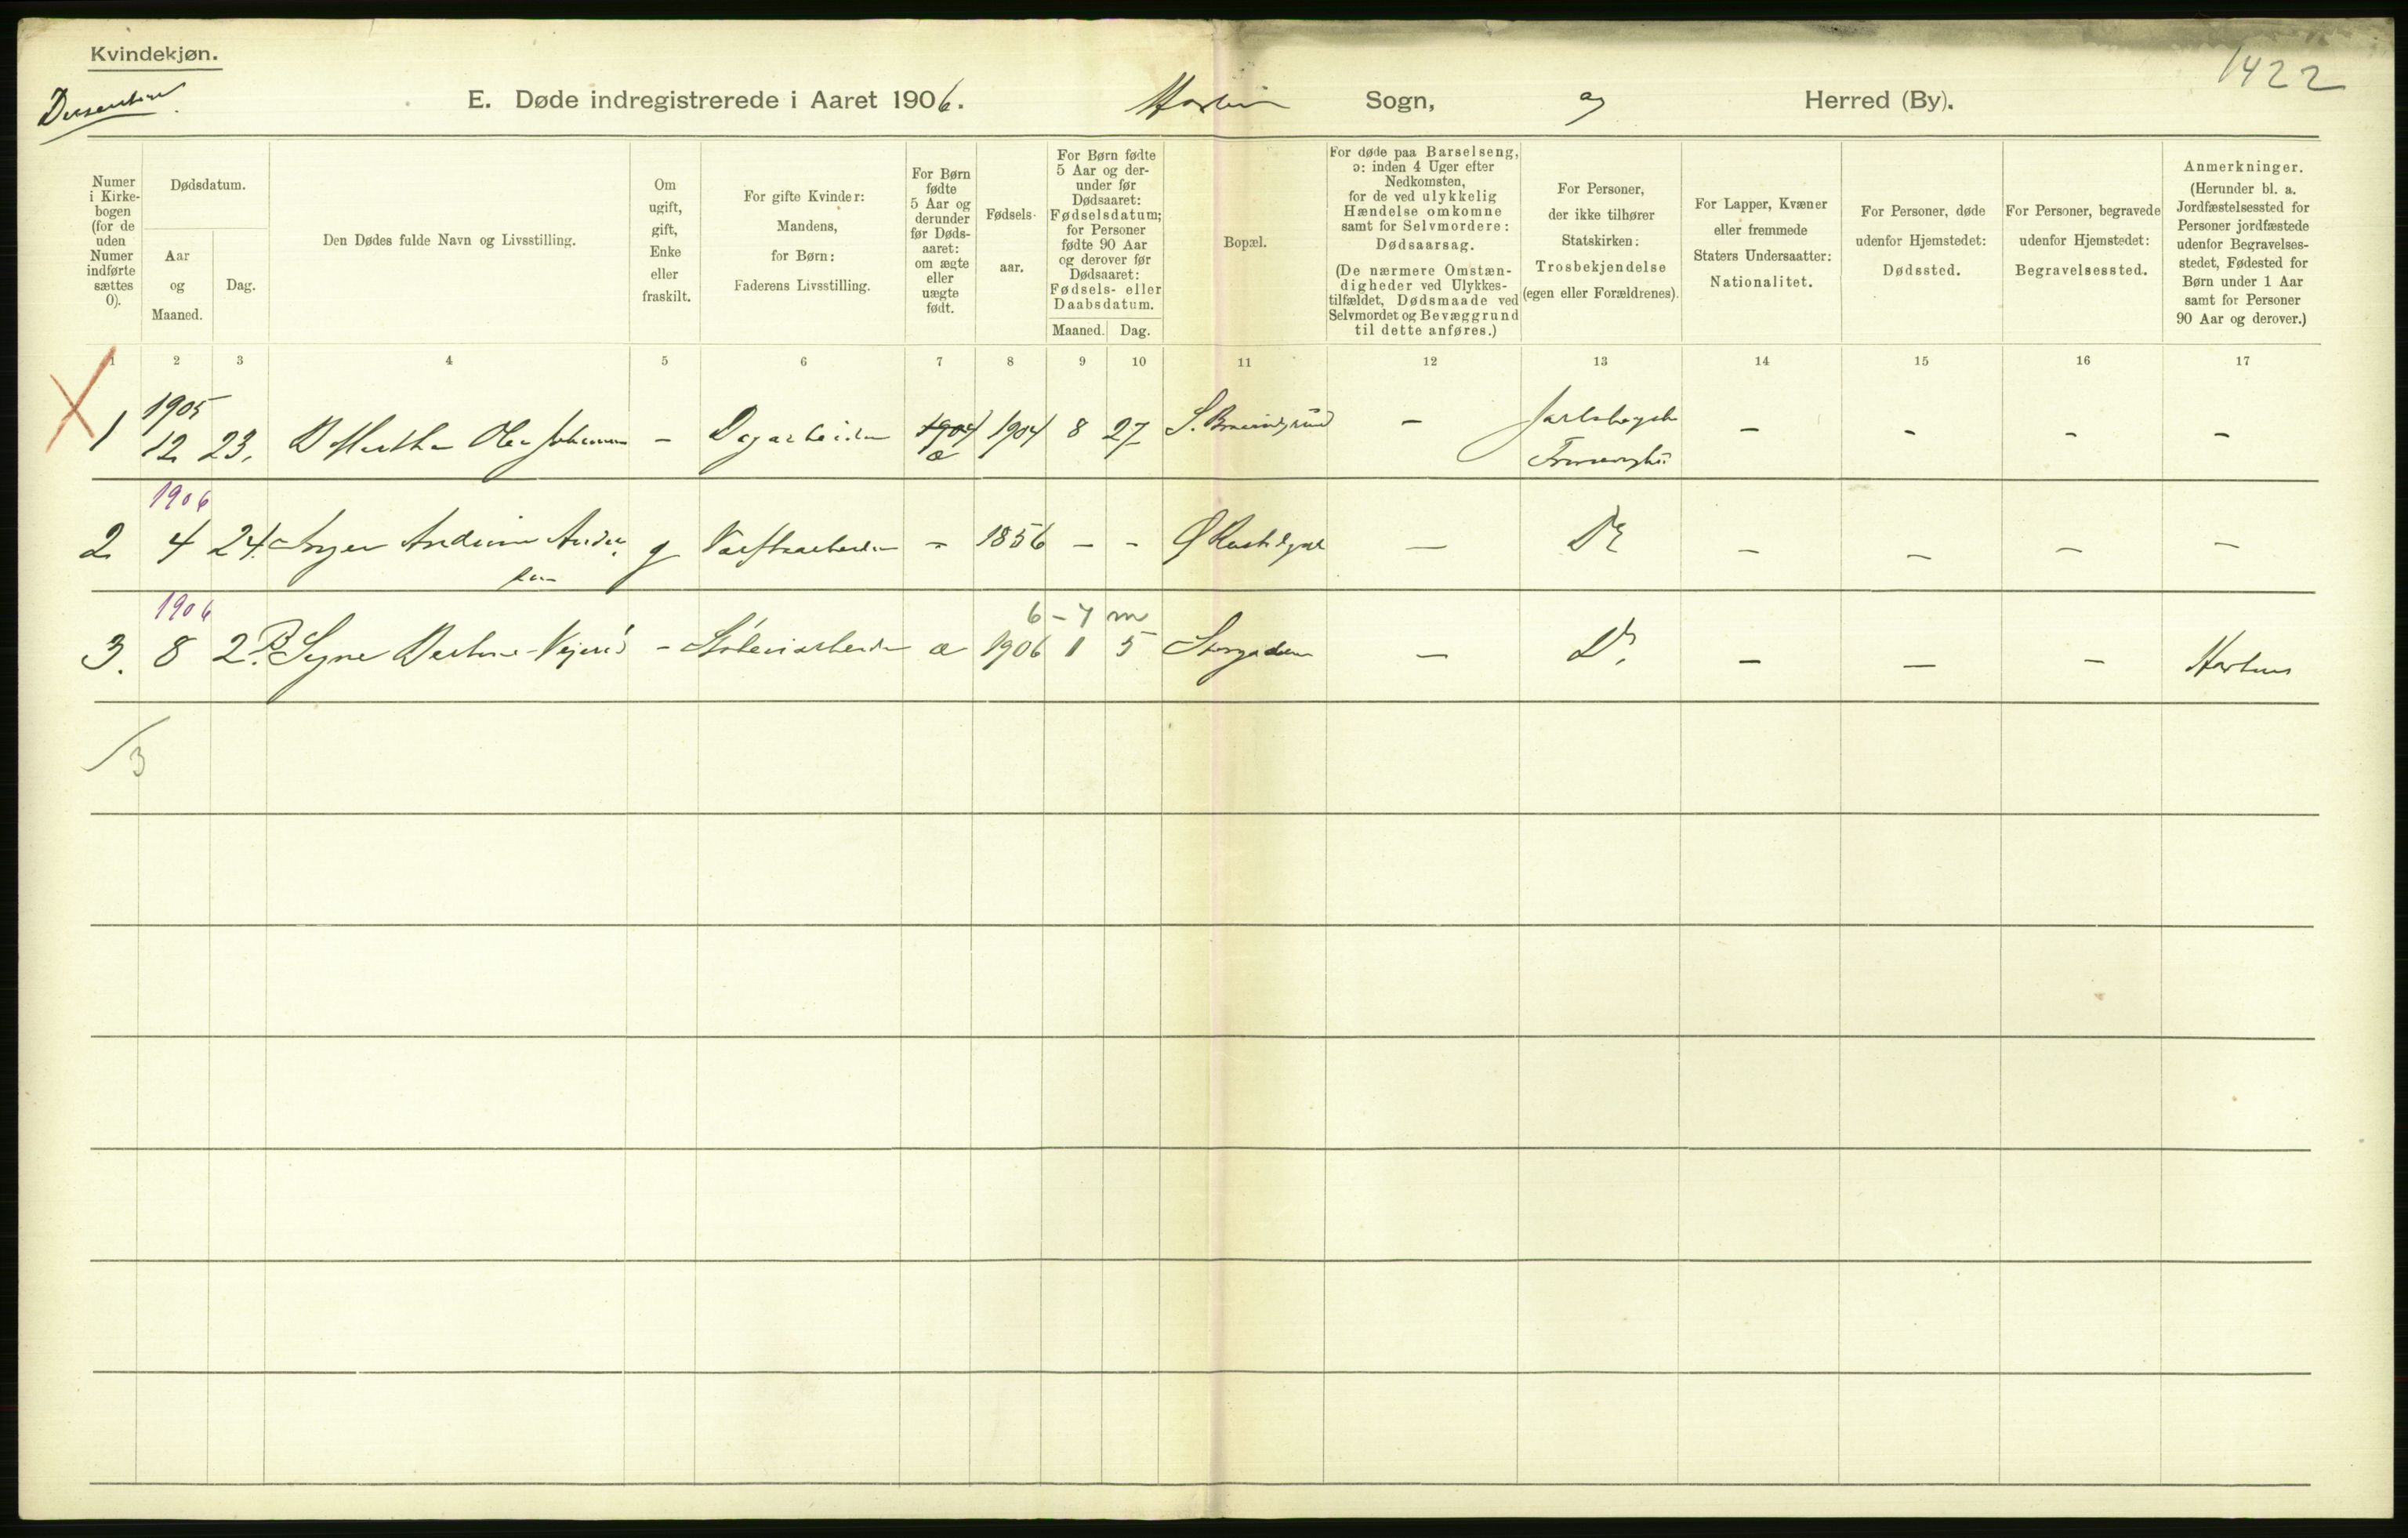 Kvindekjøn.
1422
E. Døde indregistrerede i Aaret 1906. Sogn, og Herred (By).
Numer i Kirke-bogen (for de uden Numer indførte sættes 0).
Dødsdatum.
Aar og Maaned.
Dag.
Den Dødes fulde Navn og Livsstilling.
Om ugift, gift, Enke eller fraskilt.
For gifte Kvinder: Mandens, for Børn: Faderens Livsstilling.
For Børn fødte 5 Aar og derunder før Døds-aaret: om ægte eller uægte født.
Fødsels-aar.
For Børn fødte 5 Aar og der-under før Dødsaaret: Fødselsdatum; for Personer fødte 90 Aar og derover før Dødsaaret: Fødsels- eller Daabsdatum.
Maaned. Dag.
Bopæl.
For døde paa Barselseng, ɔ: inden 4 Uger efter Nedkomsten, for de ved ulykkelig Hændelse omkomne samt for Selvmordere: Dødsaarsag.
(De nærmere Omstæn-digheder ved Ulykkes-tilfældet, Dødsmaade ved Selvmordet og Bevæggrund til dette anføres.)
For Personer, der ikke tilhører Statskirken: Trosbekjendelse (egen eller Forældrenes).
For Lapper, Kvæner eller fremmede Staters Undersaatter: Nationalitet.
For Personer, døde udenfor Hjemstedet: Dødssted.
For Personer, begravede udenfor Hjemstedet: Begravelsessted.
Anmerkninger.
(Herunder bl. a. Jordfæstelsessted for Personer jordfæstede udenfor Begravelses-stedet, Fødested for Børn under 1 Aar samt for Personer 90 Aar og derover.)
1 2 3 4 5 6 7 8 9 10 11 12 13 14 15 16 17
1905
1 12 23. Martha - Dagarbeider 1904 1904 8 27 - - - - -
æ
1906
2 4 24. g Værftsarbeider - 1856 - - - Do - - - -
1906
6-7 m
3. 8 2. Signe - æ 1906 1 5 Storgaden - Do. - - -
/3